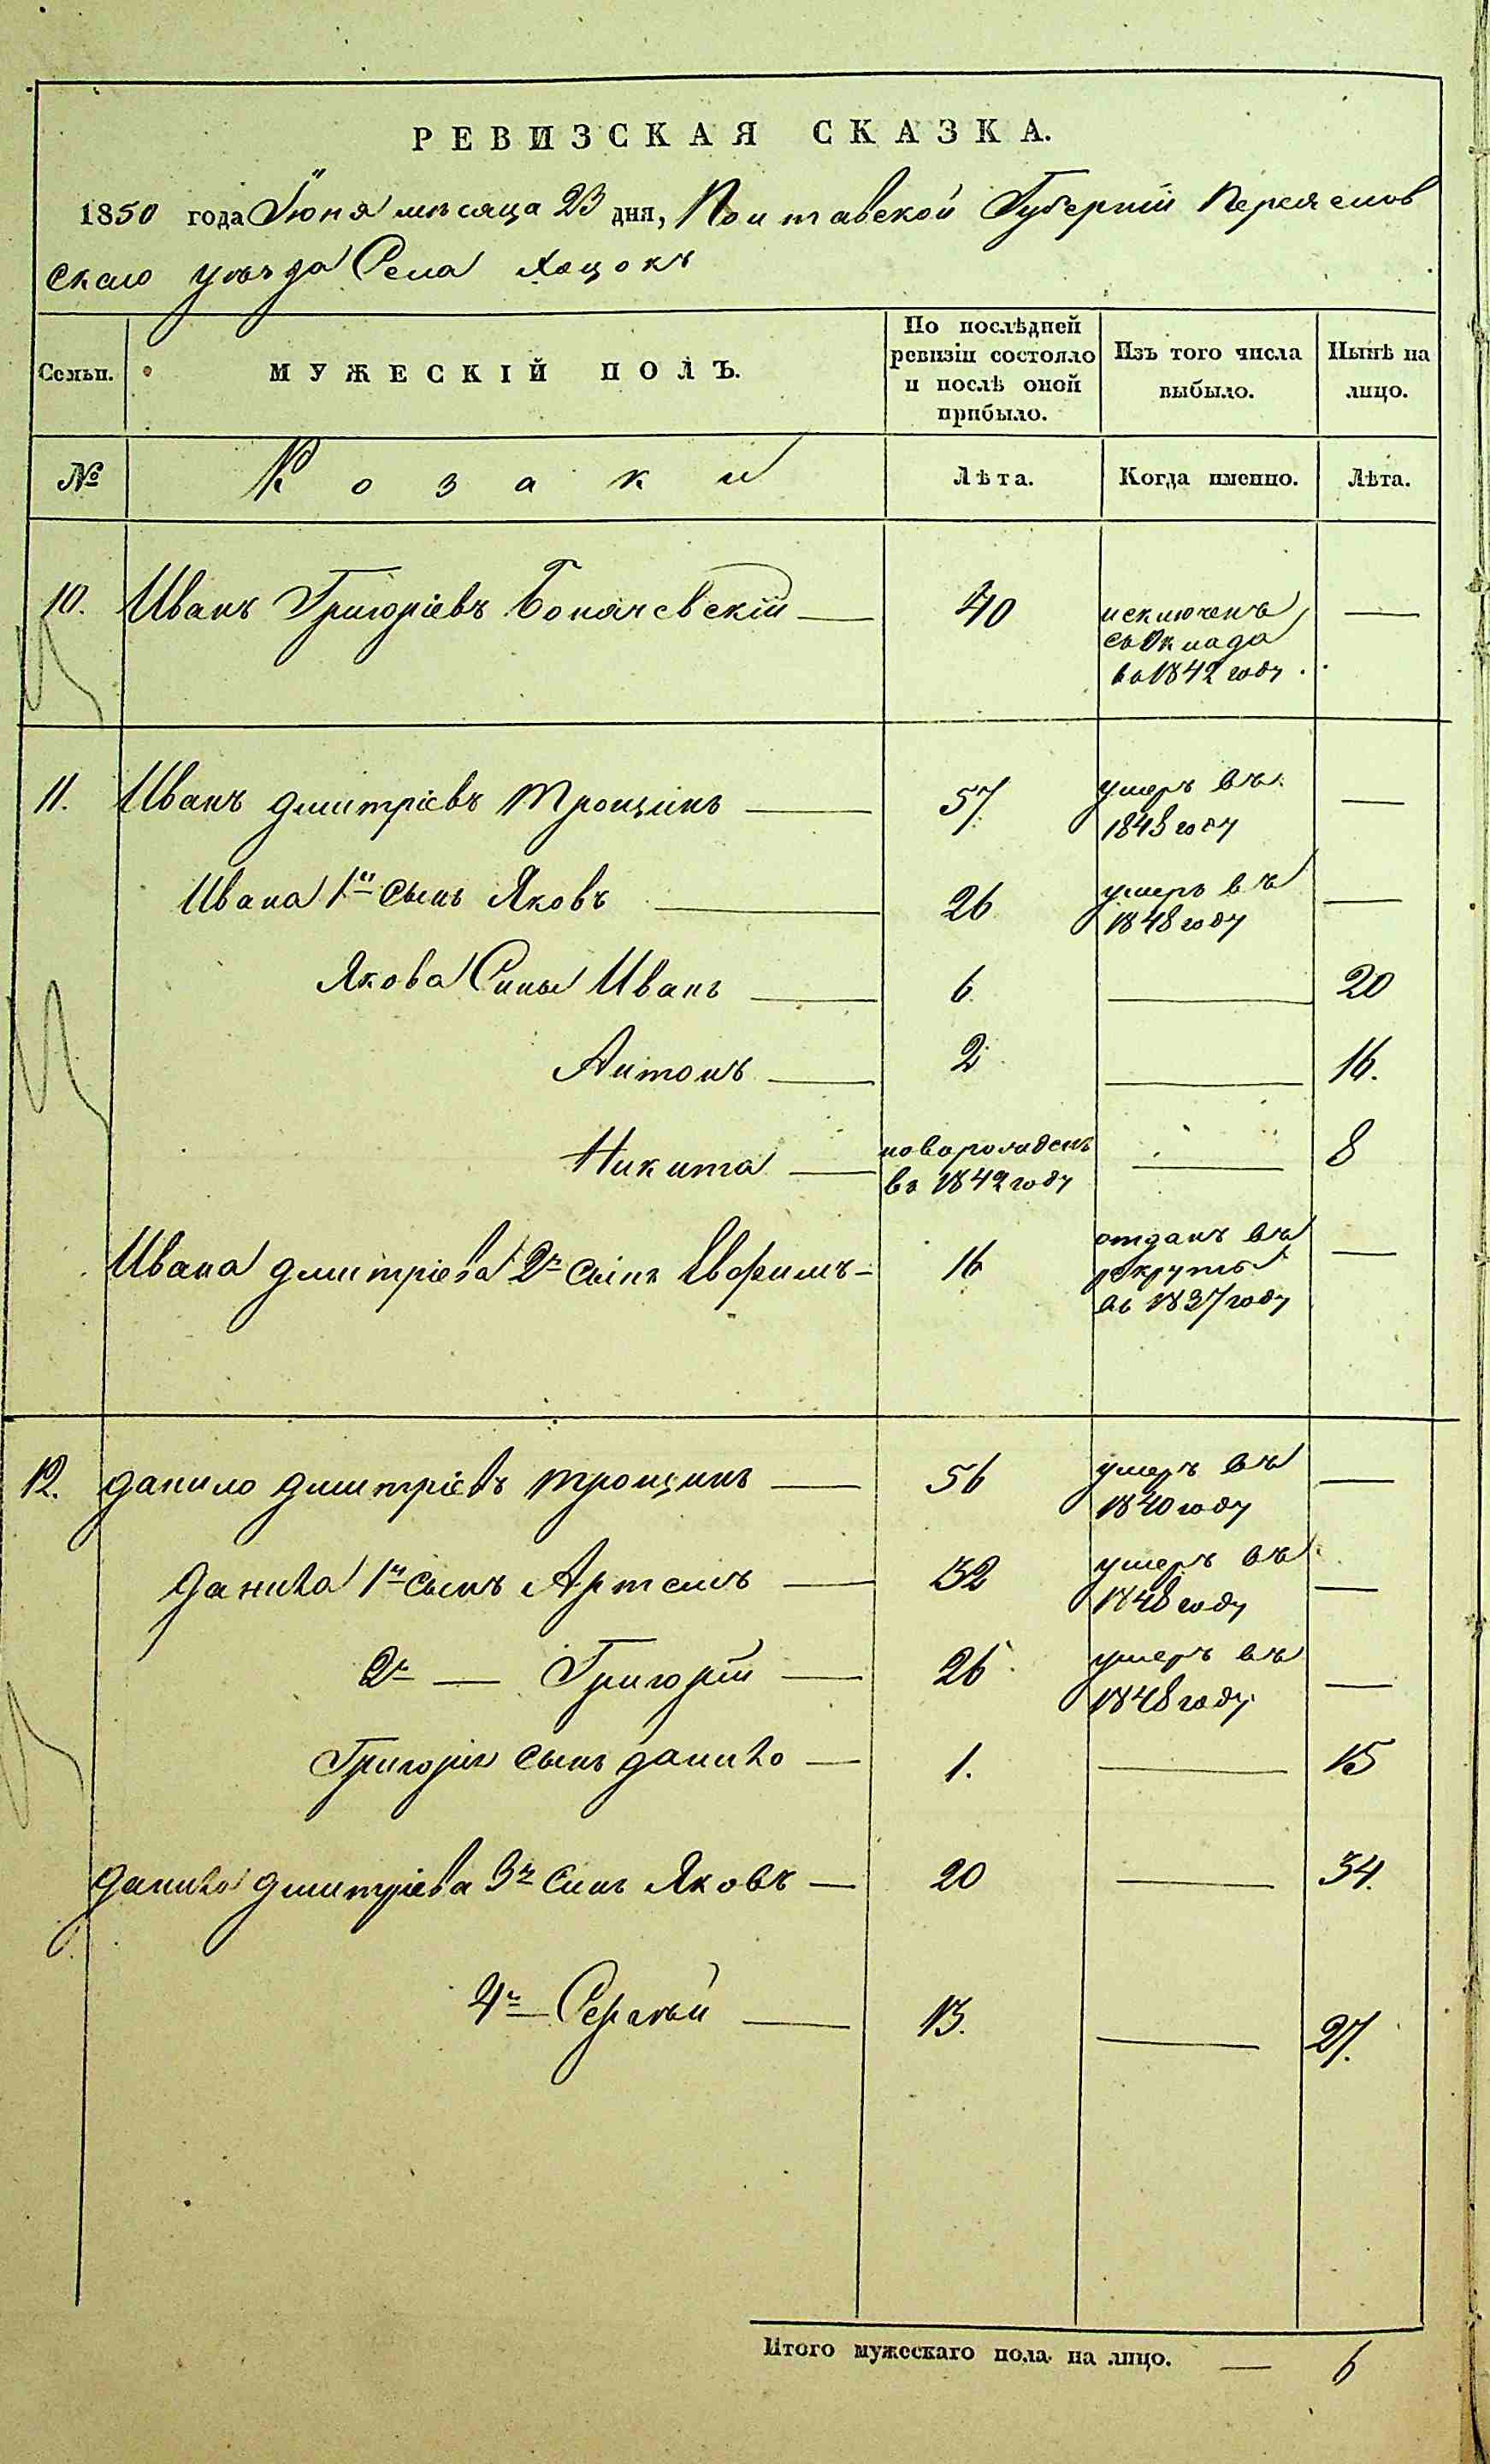 РЕВИЗСКАЯ СКАЗКА.
1850 года Іюня мѣсяца 23 дня, Полтавской Губерніи Переяслов
скаго уѣзда Села Хоцокъ
Семьи.
МУЖЕСКІЙ ПОЛЪ.
По послѣдней ревизіи состояло и послѣ оной прибыло.
Изъ того числа выбыло.
Нынѣ на лицо.
№ Козаки Лѣта. Когда именно. Лѣта.
10. Иванъ Григоріевъ 40 исключенъ —
съ Оклада
во 1842 году.
11. Иванъ дмитріевъ Трощинъ — 57 умеръ въ —
1848 году
Ивана 1й сынъ Яковъ — 26 умеръ въ —
1848 году
Якова Сины Иванъ — 6 — 20
Антонъ — 2 — 16.
Никита — новорожденъ — 8
въ 1842 году
Ивана дмитріева 2й сынъ Евфимъ — 16 отданъ въ —
рекруты
въ 1837 году
12. данило дмитріевъ трощинъ — 56 умеръ въ —
1840 году
данила 1й сынъ Артемъ — 32 умеръ въ —
1848 году
2й — Григорій — 26 умеръ въ —
1848 году
Григорія сынъ данило — 1. — 15
данила дмитріева 3й синъ Яковъ — 20 — 34.
4й — Сергѣй — 13. — 27.
Итого мужескаго пола на лицо. — 6